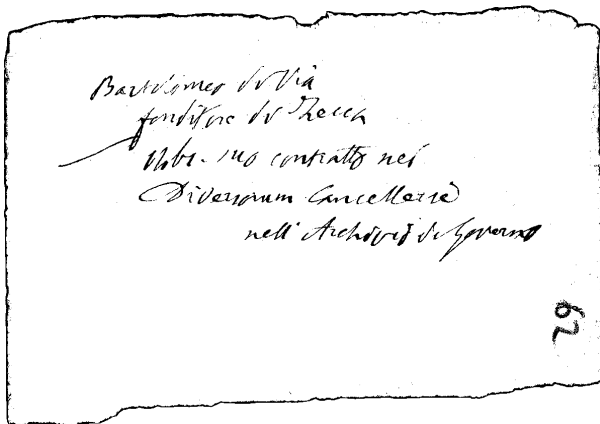 Bartolomeo di Via
fonditore di Zecca
suo contratto nei
Diversorum Cancellerie
nell'Archivio di Governo
29